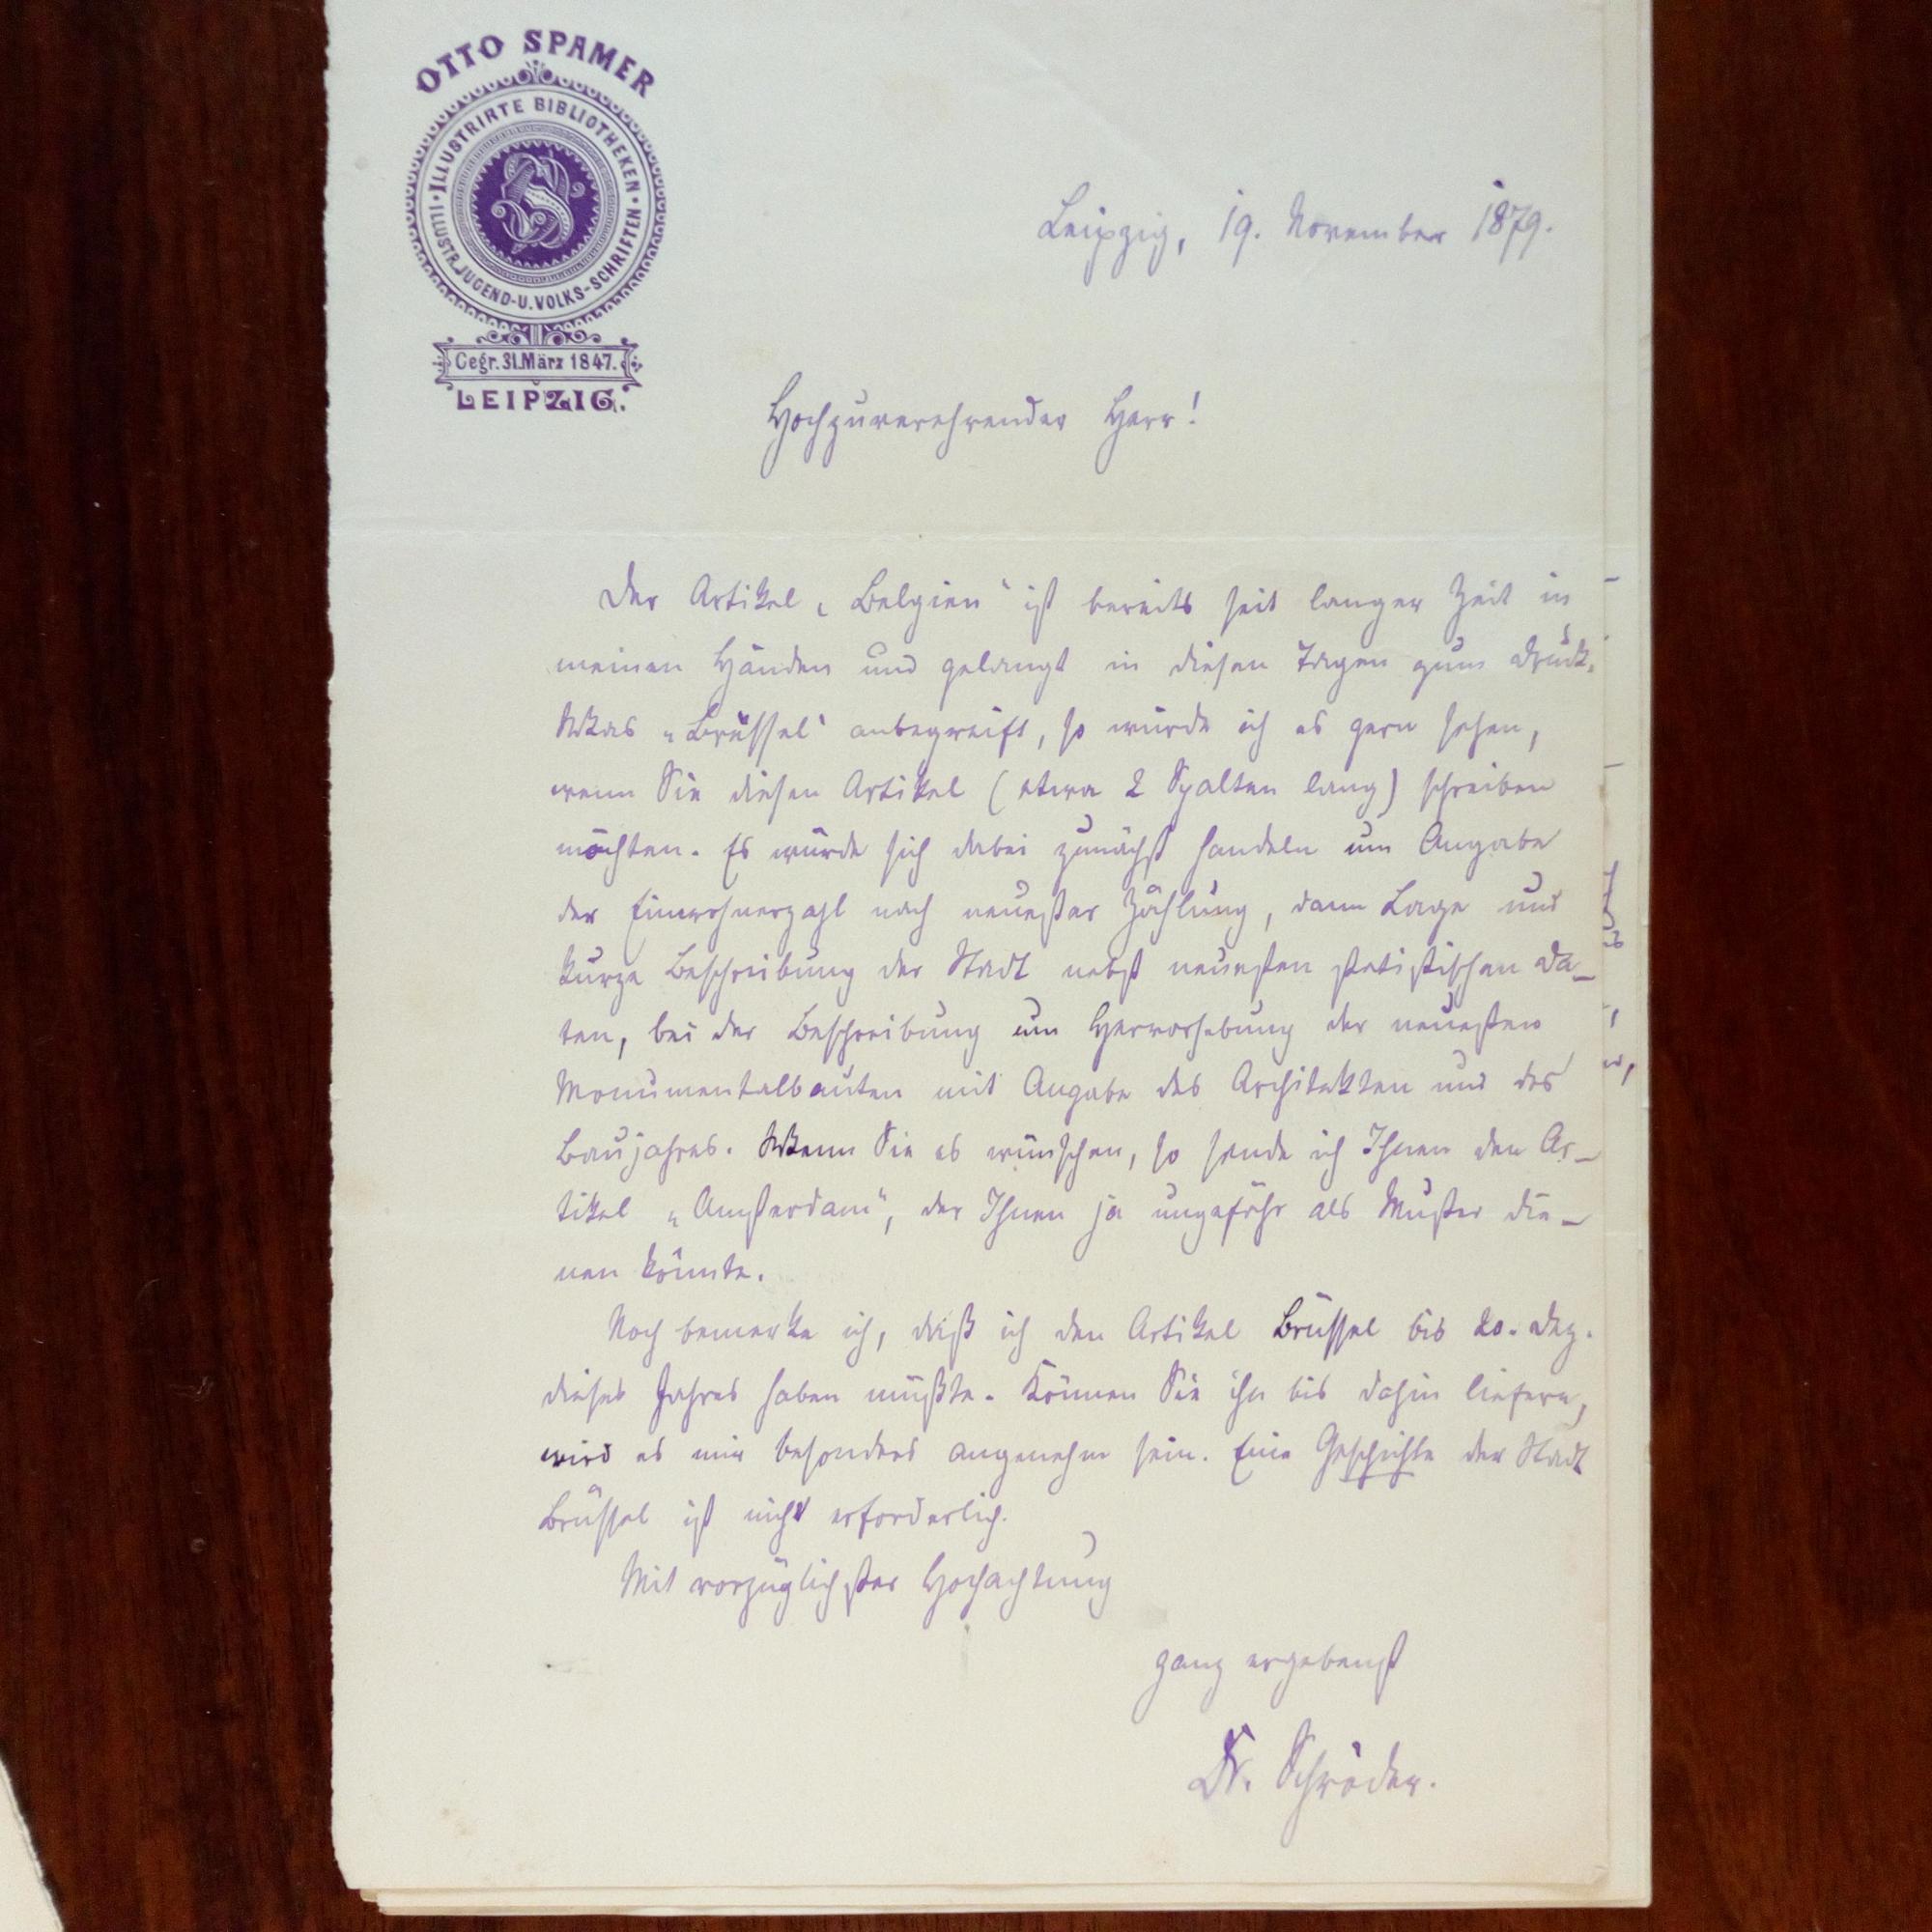 OTTO SPAMER
ILLUSTRIRTE BIBLIOTHEKEN
ILLUSTR. JUGEND-U. VOLKS-SCHRIFTEN
Gegr. 31. März 1847.
LEIPZIG.
Leipzig, 19. November 1879.
Hochzuverehrender Herr!
Der Artikel „Belgien“ ist bereits seit langer Zeit in
meinen Händen und gelangt in diesen Tagen zum Druck.
Was „Brüssel“ anbegreift, so würde ich es gern sehen,
wenn Sie diesen Artikel (etwa 2 Spalten lang) schreiben
möchten. Es würde sich dabei zunächst handeln um Angabe
der Einwohnerzahl nach neuester Zählung, dann Lage und
kurze Beschreibung der Stadt nebst neuesten statistischen Da-
ten, bei der Beschreibung um Hervorhebung der neuesten
Monumentalbauten mit Angabe des Architekten und des
Baujahres. Wenn Sie es wünschen, so sende ich Ihnen den Ar-
tikel „Amsterdam“, der Ihnen ja ungefähr als Muster die-
nen könnte.
Noch bemerke ich, daß ich den Artikel Brüssel bis 20. Dez.
dieses Jahres haben müßte. Können Sie ihn bis dahin liefern,
wird es mir besonders angenehm sein. Eine Geschichte der Stadt
Brüssel ist nicht erforderlich.
Mit vorzüglichster Hochachtung
ganz ergebenst
Dr. Schröder.